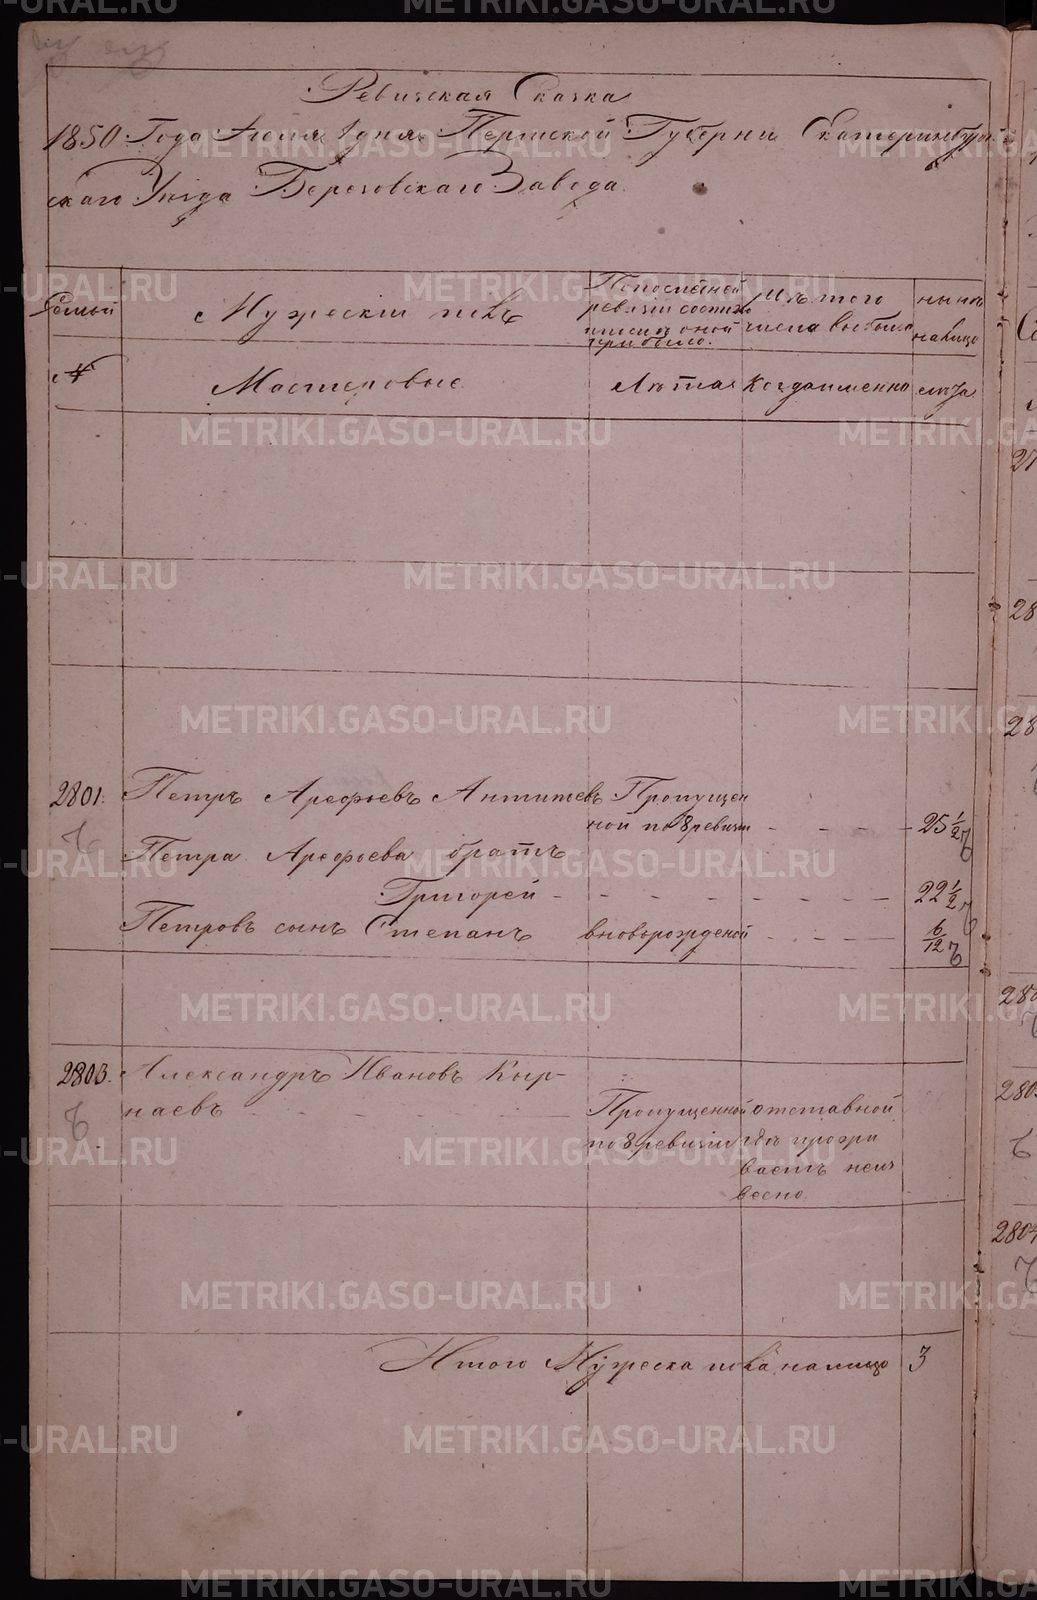 Ревизская Сказка
1850 Года Июля 1 дня Пермской Губернии Екатеринбург-
скаго Уѣзда Березовскаго Завода.
Семьи
Мужескій полъ
По последней
ревизіи состояло
и после оной
прибыло.
Изъ того
числа выбыло
ныне
на лицо
№
Мастеровые
Лѣта
Когда именно
лѣта
2801.
Петръ Арефьевъ Антипевъ
Пропущен
ной по 8 ревизіи
25 1/2
Петра Арефьева братъ
Григорей
22 1/2
Петровъ сынъ Степанъ
вновьрожденой
6/12
2803.
Александръ Ивановъ Кыр-
наевъ
Пропущенной
по 8 ревизіи
отставной
гдѣ прожи
ваетъ неиз
весно.
Итого Мужеска пола на лицо 3
METRIKI.GASO-URAL.RU